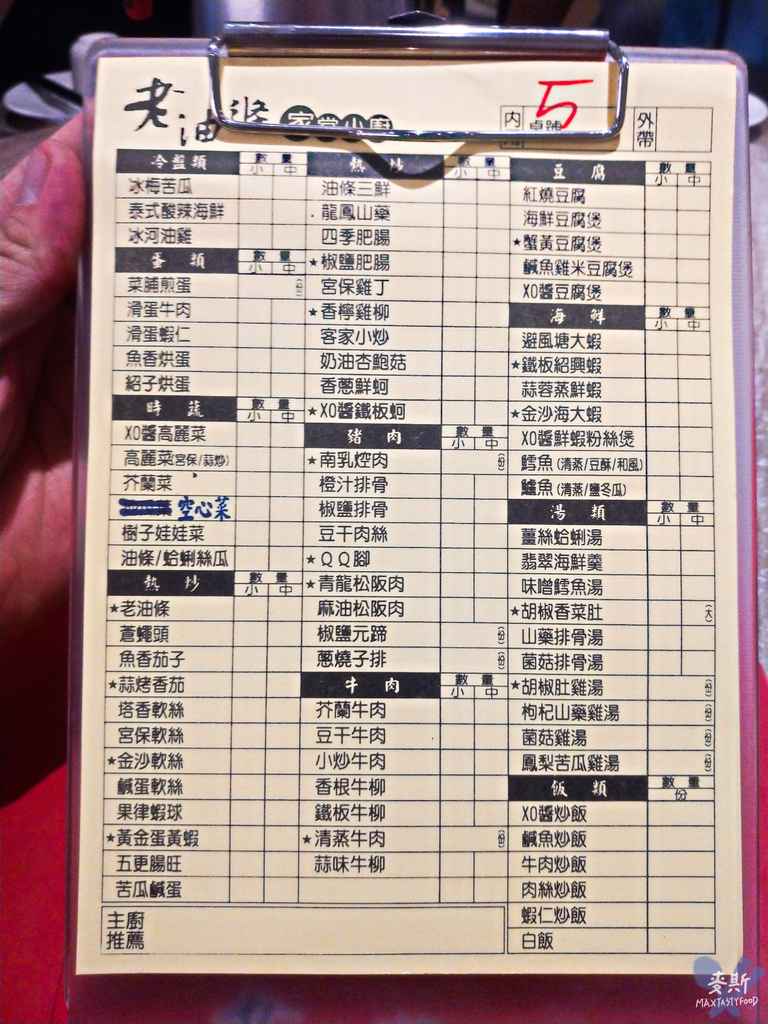 老油條
家常小廚
5
內
桌號
外帶
冷盤類 數量 小 中
冰梅苦瓜
泰式酸辣海鮮
冰河油雞
蛋類 數量 小 中
菜脯煎蛋 (份)
滑蛋牛肉
滑蛋蝦仁
魚香烘蛋
紹子烘蛋
時蔬 數量 小 中
XO醬高麗菜
高麗菜(宮保/蒜炒)
芥蘭菜
空心菜
樹子娃娃菜
油條/蛤蜊絲瓜
熱炒 數量 小 中
★老油條
蒼蠅頭
魚香茄子
★蒜烤香茄
塔香軟絲
宮保軟絲
★金沙軟絲
鹹蛋軟絲
果律蝦球
★黃金蛋黃蝦
五更腸旺
苦瓜鹹蛋
主廚
推薦
熱炒 數量 小 中
油條三鮮
龍鳳山藥
四季肥腸
★椒鹽肥腸
宮保雞丁
★香檸雞柳
客家小炒
奶油杏鮑菇
香蔥鮮蚵
★XO醬鐵板蚵
豬肉 數量 小 中
★南乳焢肉 (份)
橙汁排骨
椒鹽排骨
豆干肉絲
★QQ腳
★青龍松阪肉
麻油松阪肉
椒鹽元蹄 (份)
蔥燒子排 (份)
牛肉 數量 小 中
芥蘭牛肉
豆干牛肉
小炒牛肉
香根牛柳
鐵板牛柳
★清蒸牛肉 (份)
蒜味牛柳
豆腐 數量 小 中
紅燒豆腐
海鮮豆腐煲
★蟹黃豆腐煲
鹹魚雞米豆腐煲
XO醬豆腐煲
海鮮 數量 小 中
避風塘大蝦
★鐵板紹興蝦
蒜蓉蒸鮮蝦
★金沙海大蝦
XO醬鮮蝦粉絲煲
鱈魚(清蒸/豆酥/和風)
鱸魚(清蒸/鹽冬瓜)
湯類 數量 小 中
薑絲蛤蜊湯
翡翠海鮮羹
味噌鱈魚湯
★胡椒香菜肚 (大)
山藥排骨湯
菌菇排骨湯
★胡椒肚雞湯 (份)
枸杞山藥雞湯 (份)
菌菇雞湯 (份)
鳳梨苦瓜雞湯 (份)
飯類 數量 份
XO醬炒飯
鹹魚炒飯
牛肉炒飯
肉絲炒飯
蝦仁炒飯
白飯
麥斯
MAXTASTYFOOD